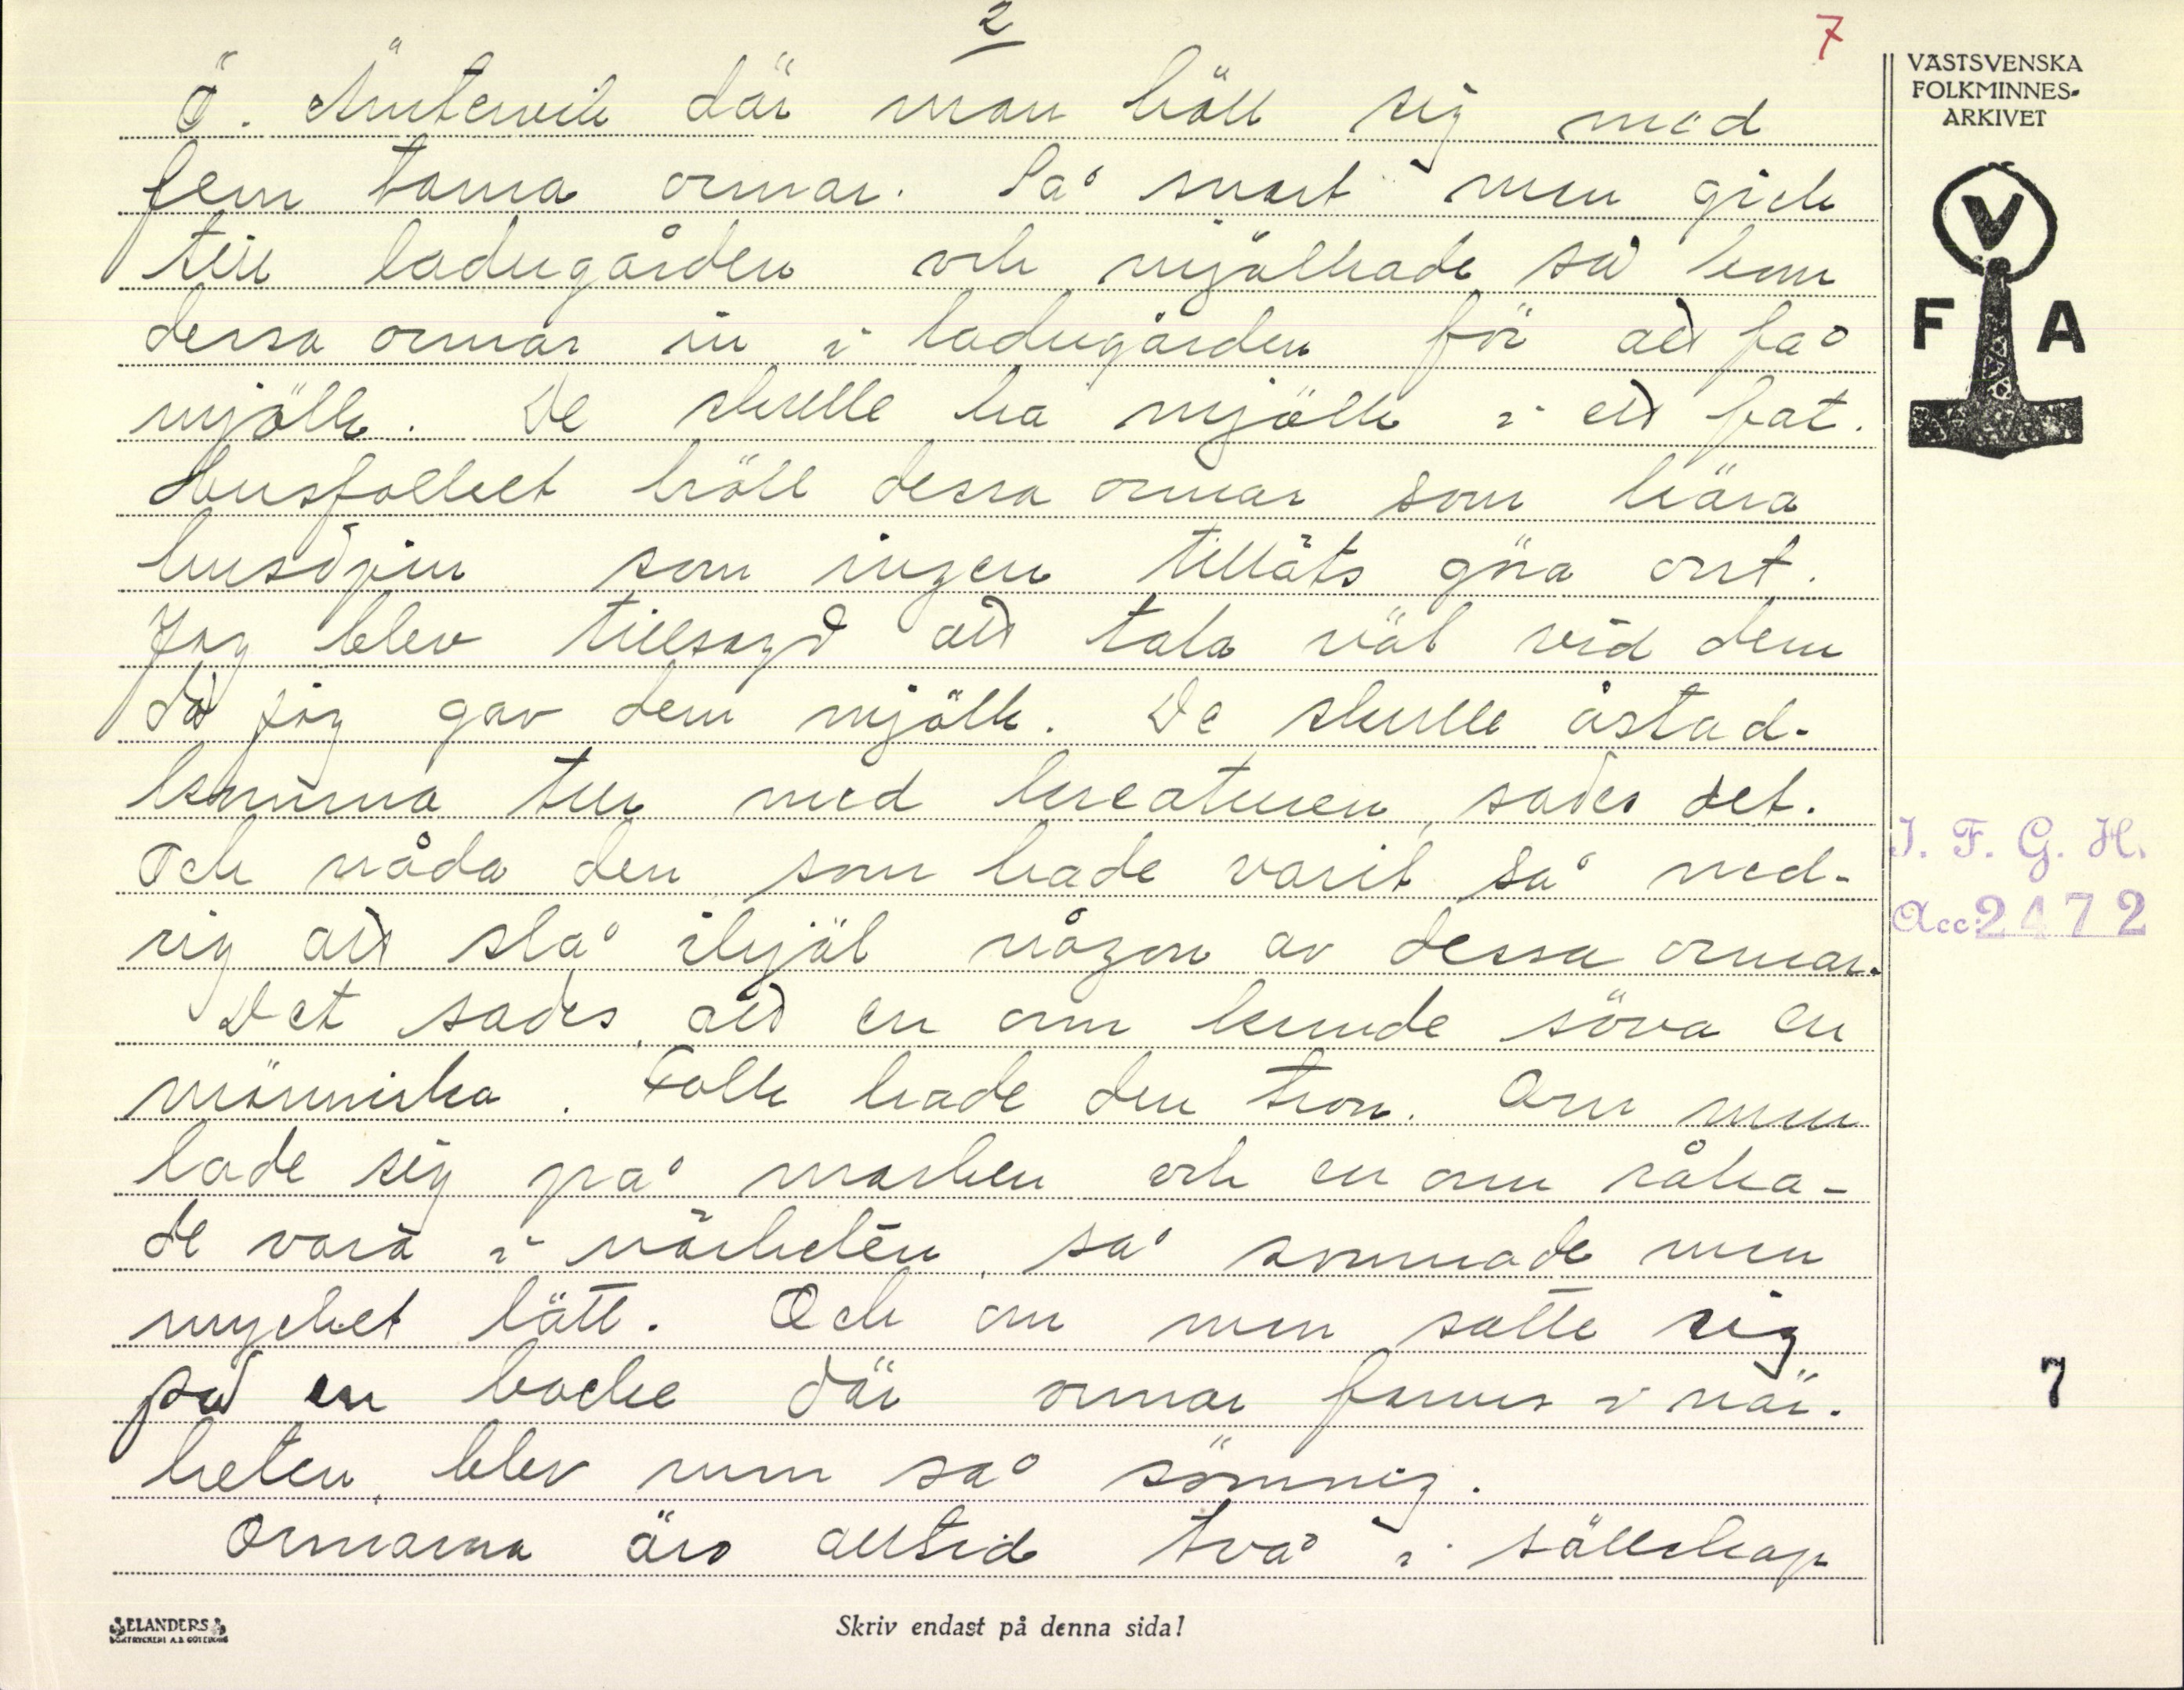 2
7
Ö. Ämtervik där man höll sig med
fem tama ormar. Så snart man gick
till ladugården och mjölkade så kom
dessa ormar in i ladugården för att få
mjölk. De skulle ha mjölk i ett fat.
Husfolket höll dessa ormar som kära
husdjur som ingen tilläts göra ont.
Jag blev tillsagd att tala väl vid dem
då jag gav dem mjölk. De skulle åstad-
komma tur med kreaturen, sades det.
Och nåda den som hade varit så ned-
rig att slå ihjäl någon av dessa ormar.
Det sades, att en orm kunde söva en
människa. Folk hade den tron. Om man
lade sig på marken och en orm råka-
de vara i närheten, så somnade man
mycket lätt. Och om man satte sig
på en backe där ormar fanns i när-
heten, blev man så sömnig.
Ormarna äro alltid två i sällskap
VÄSTSVENSKA
FOLKMINNES-
ARKIVET
V
F A
I. F. G. H.
Acc. 2472
7
ELANDERS
BOKTRYCKERI A.B. GÖTEBORG
Skriv endast på denna sida!